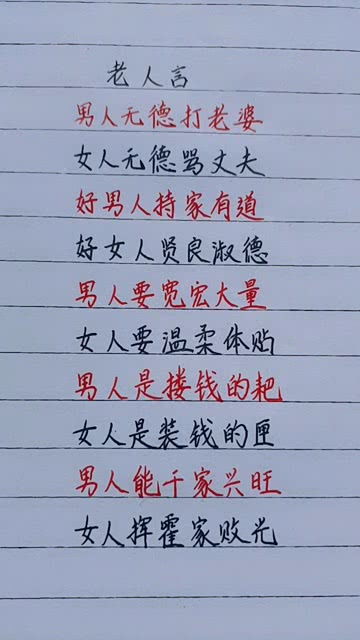 老人言
男人无德打老婆
女人无德骂丈夫
好男人持家有道
好女人贤良淑德
男人要宽宏大量
女人要温柔体贴
男人是搂钱的耙
女人是装钱的匣
男人能干家兴旺
女人挥霍家败光